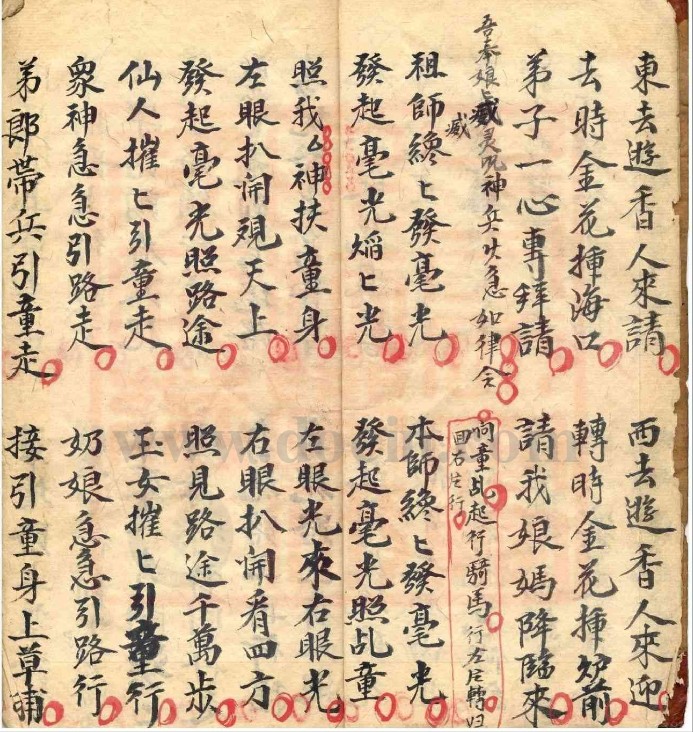 東去遊香人來請
西去遊香人來迎
去時金花揷海口
轉時金花揷炉前
弟子一心專拜請
請我娘媽降臨來
吾奉娘媽灵咒神兵火急如律令
向童乩起行騎馬行左片轉归
回右片行
祖師纔匕發毫光
本師纔匕發毫光
發起毫光焰匕光
發起毫光照乩童
照我厶神扶童身
左眼光來右眼光
左眼扒開覌天上
右眼扒開看四方
發起毫光照路途
照見路途千萬步
仙人摧匕引童走
玉女摧匕引童行
衆神急急引路走
奶娘急急引路行
弟郎帶兵引童走
接引童身上草埔
www.docin.com